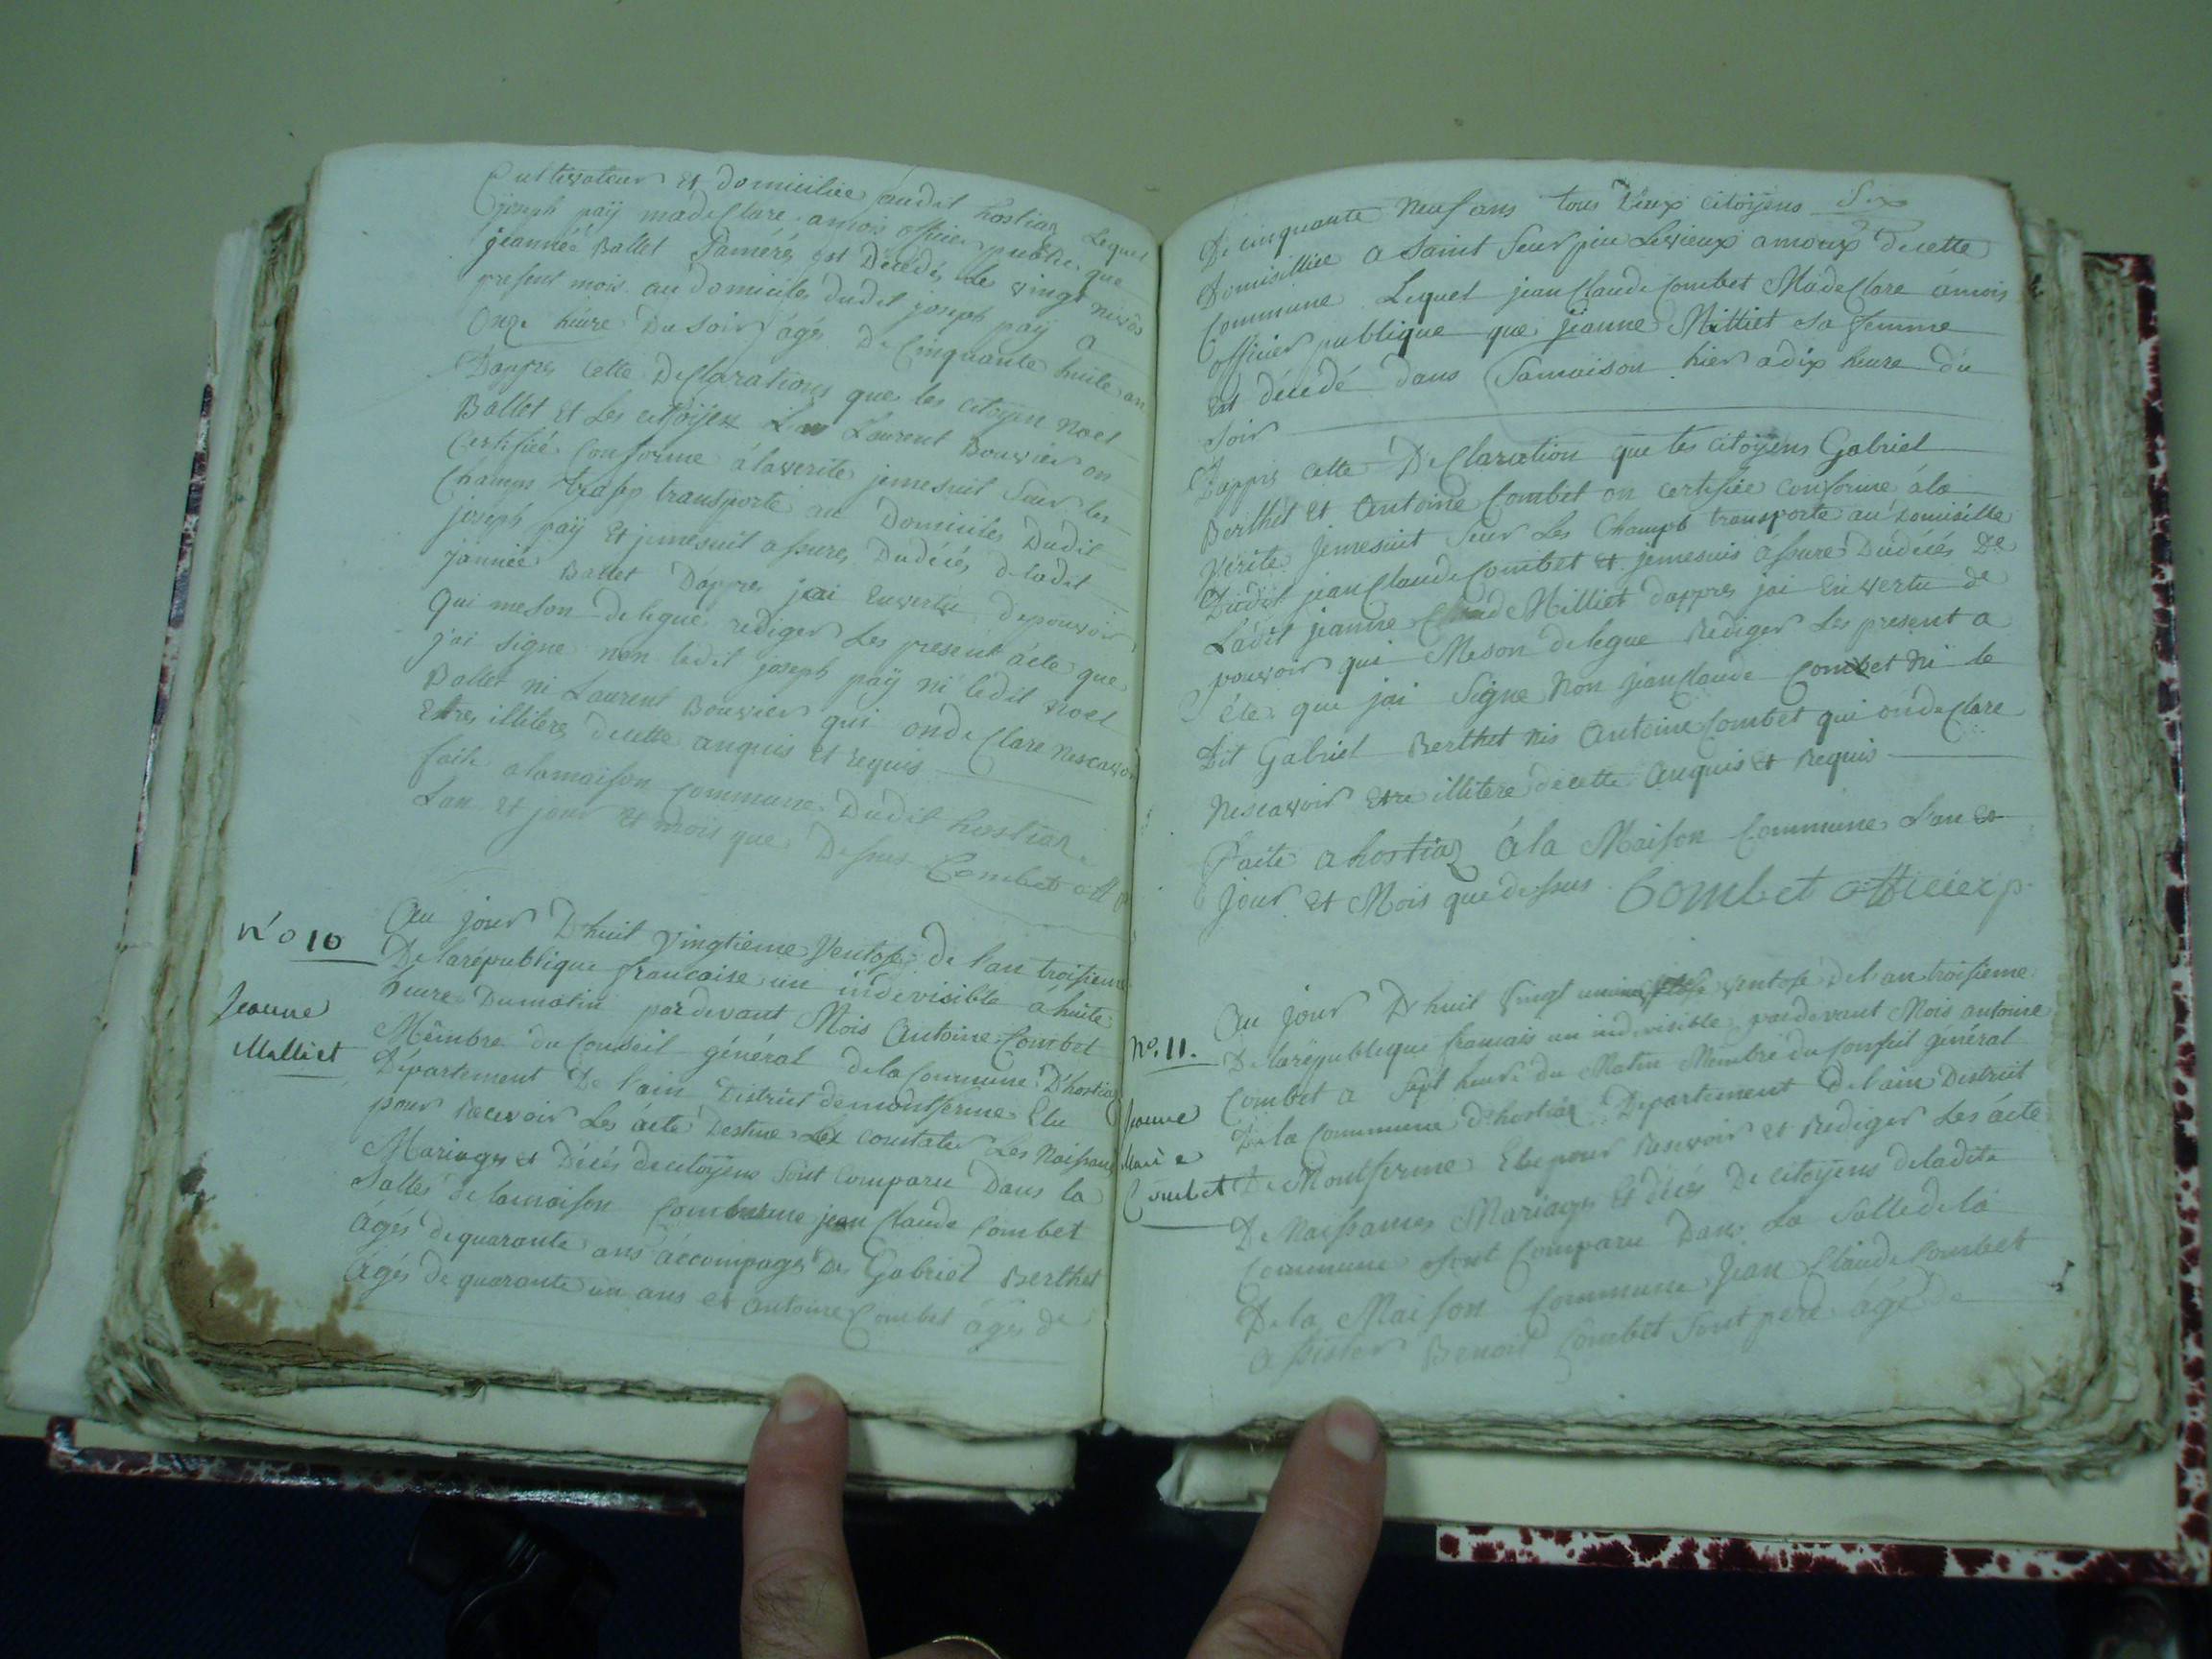 Cultivateur et domicilié audit hostiaz Lequel
joseph paÿ madeClare amois officier public que
jeanneé Ballet Saméré est Decedés le vingt nivôs
present mois au domiciles dudit joseph paÿ a
Onze heure Du soir agé De Cinquante huite an
Dappres Cette DeClarations que les citoyen noel
Ballet et Les citoÿen Laurent Bouvier on
Certifiéé Conforme álaverite jemesuit Seur les
Champs transporte au Domiciles Dudit
joseph paÿ Et jemesuit assures Dudécés deladit
jannéé Ballet Dappres jai Enverta depouvoir
qui meson delegué rediger Les present ácte que
j'ai signe non ledit joseph paÿ ni ledit noel
Ballet ni Laurent Bouvier qui ondeClare nescavoir
Etres illitere decette anquis et requis
faite alamaison Commune Dudit hostiaz
Lan et jour et mois que Dessus Combet off p
N° 10
Jeanne
Milliet
Au jour Dhuit Vingtieme Ventose De l'an troisieme
De larépublique francaise une indevisible á huite
heure Dumatin pardevant Mois Antoine Combet
Membre du Conseil général dela Commune D'hostiaz
Département De l'ain District demontferme Elu
pour Recevoir Les ácte Destine Les constater Les Naissance
Mariages et Décés decitoÿens sont comparu Dans la
salles de lamaison Commune jean Claude Combet
Agés dequarante ans áccompagé De Gabriel Berthet
Agés de quarante un ans et antoine Combet ágés de
De cinquante Neuf ans tous Deux citoÿens
Domicilliee a saint Seurpin Levieux amoux decette
Commune Lequel jean Claude Combet MadeClare ámois
officier publique que jeanne Milliet sa femme
Est décédé dans Samaison hier adix heure du
soir
Dappres cette DeClaration que les citoÿens Gabriel
Berthet et Antoine Combet on certifiée conforme ála
Vérite Jemesuit seur Les Champs transporte au domicille
Dudit jean Claude Combet et jemesuis ássure Dudécés De
Ladit jeanne Milliet dappres jai En vertu de
pouvoir qui Meson delegue Rediger Les present a
cte que jai signe Non jean Claude Combet ni le
Dit Gabriel Berthet nis Antoine Combet qui ondeClare
Nescavoir Etre illitere decette anquis et Requis
Faite a hostiaz ála Maison Commune L'an et
Jour et Mois que dessus Combet officier p
N°. 11.
Jeanne
Marie
Combet
Au jour D'huit Vingt un ventose Del'an troisieme
De larépublique francais un indevisible pardevant Mois antoine
Combet a sept heure du Matin Membre du Conseil général
De la Commune D'hostiaz Departement Del'ain District
De Montferme Elu pour Recevoir et Rediger Les ácte
De Naissances Mariages Et décés De citoÿens deladite
Commune sont Comparu Dans La Salle dela
De la Maison Commune Jean Claude Combet
assister Benoit Combet sont pere ágé de